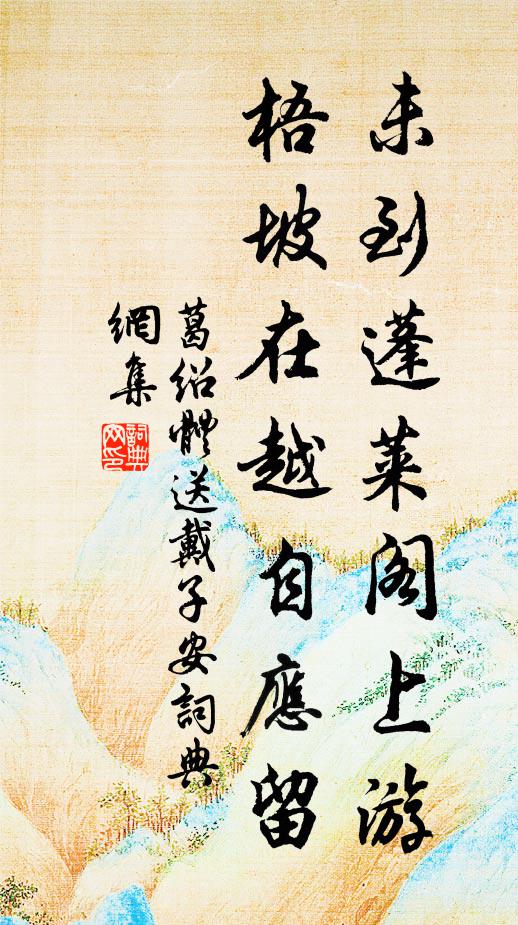 未到蓬萊阁上游
梧坡在越自應留
葛绍體送戴子安詞典
網集
詞典
网印